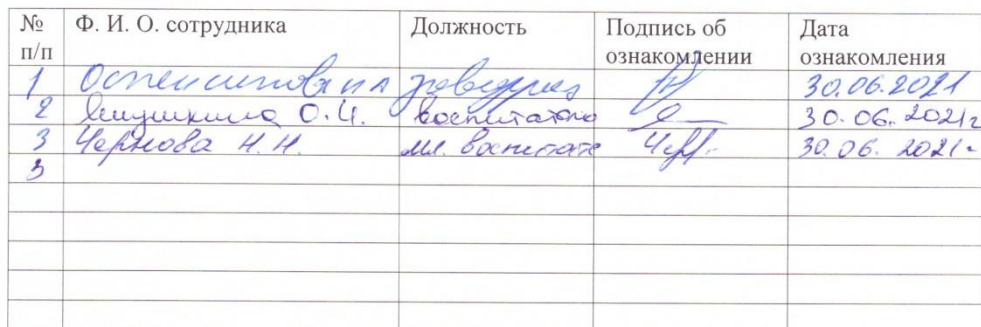 № п/п Ф. И. О. сотрудника Должность Подпись об ознакомлении Дата ознакомления
1 30.06.2021
2 О. И. воспитатель 30.06.2021г
3 Чернова Н. Н. мл. воспитате 30.06.2021г
3